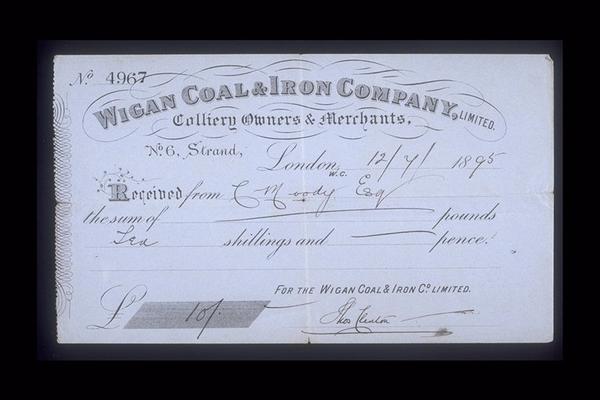 No. 4967
WIGAN COAL & IRON COMPANY, LIMITED.
Colliery Owners & Merchants,
No. 6, Strand,
London, W.C. 12/7/1895
Received from C Moody Esq
the sum of — pounds
Ten shillings and — pence.
FOR THE WIGAN COAL & IRON CO. LIMITED.
£ 10/.
Thos